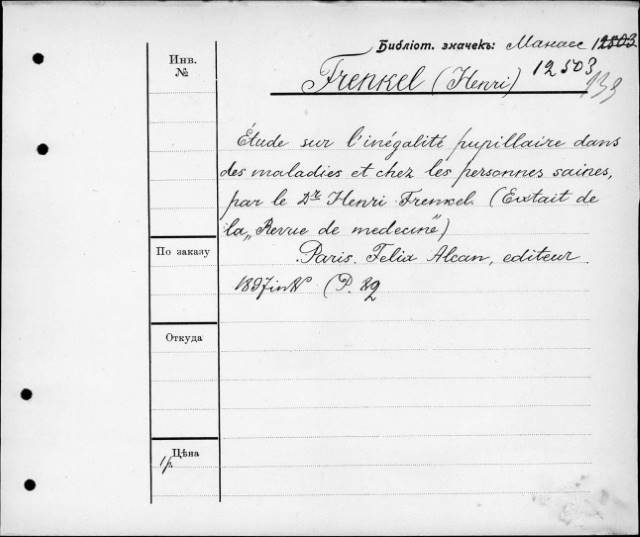 Библіот. значекъ: Манасс 12503
Инв. №
Frenkel (Henri) 12503
Étude sur l'inégalité pupillaire dans
des maladies et chez les personnes saines,
par le Dr Henri Frenkel. (Extait de
la „Revue de medecine")
По заказу
Paris. Felix Alcan, editeur.
1897 in
(P. 82
Откуда
Цѣна
1 р.